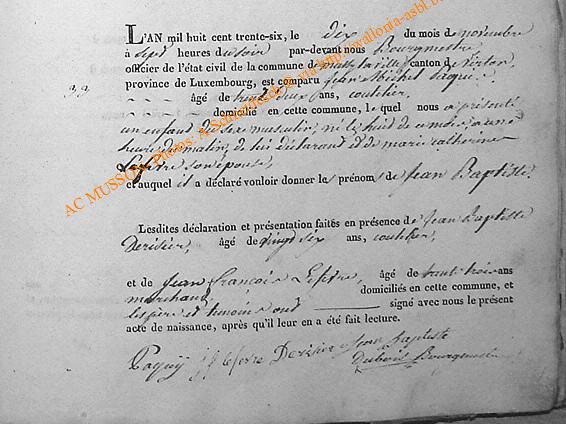 L'AN mil huit cent trente-six, le dix du mois de novembre
à sept heures du soir par-devant nous Bourgmestre
officier de l'état civil de la commune de mussy la ville canton de Virton,
province de Luxembourg, est comparu Jean Michel
33 âgé de trente deux ans, coutelier,
domicilié en cette commune, lequel nous a présenté
un enfant du sexe masculin, né le huit de ce mois, à une
heure du matin, de lui déclarant et de marie catherine
Lefevre son épouse,
et auquel il a déclaré vouloir donner le prénom de Jean Baptiste
Lesdites déclaration et présentation faites en présence de Jean Baptiste
âgé de vingt six ans, coutelier,
et de Jean francois Lefevre, âgé de trente trois ans
marchand domiciliés en cette commune, et
les père et temoins ont signé avec nous le présent
acte de naissance, après qu'il leur en a été fait lecture.
Lefevre Jean Baptiste
Dubois Bourgmestre
AC MUSSON Photos: A. via http://wallonia-asbl.be